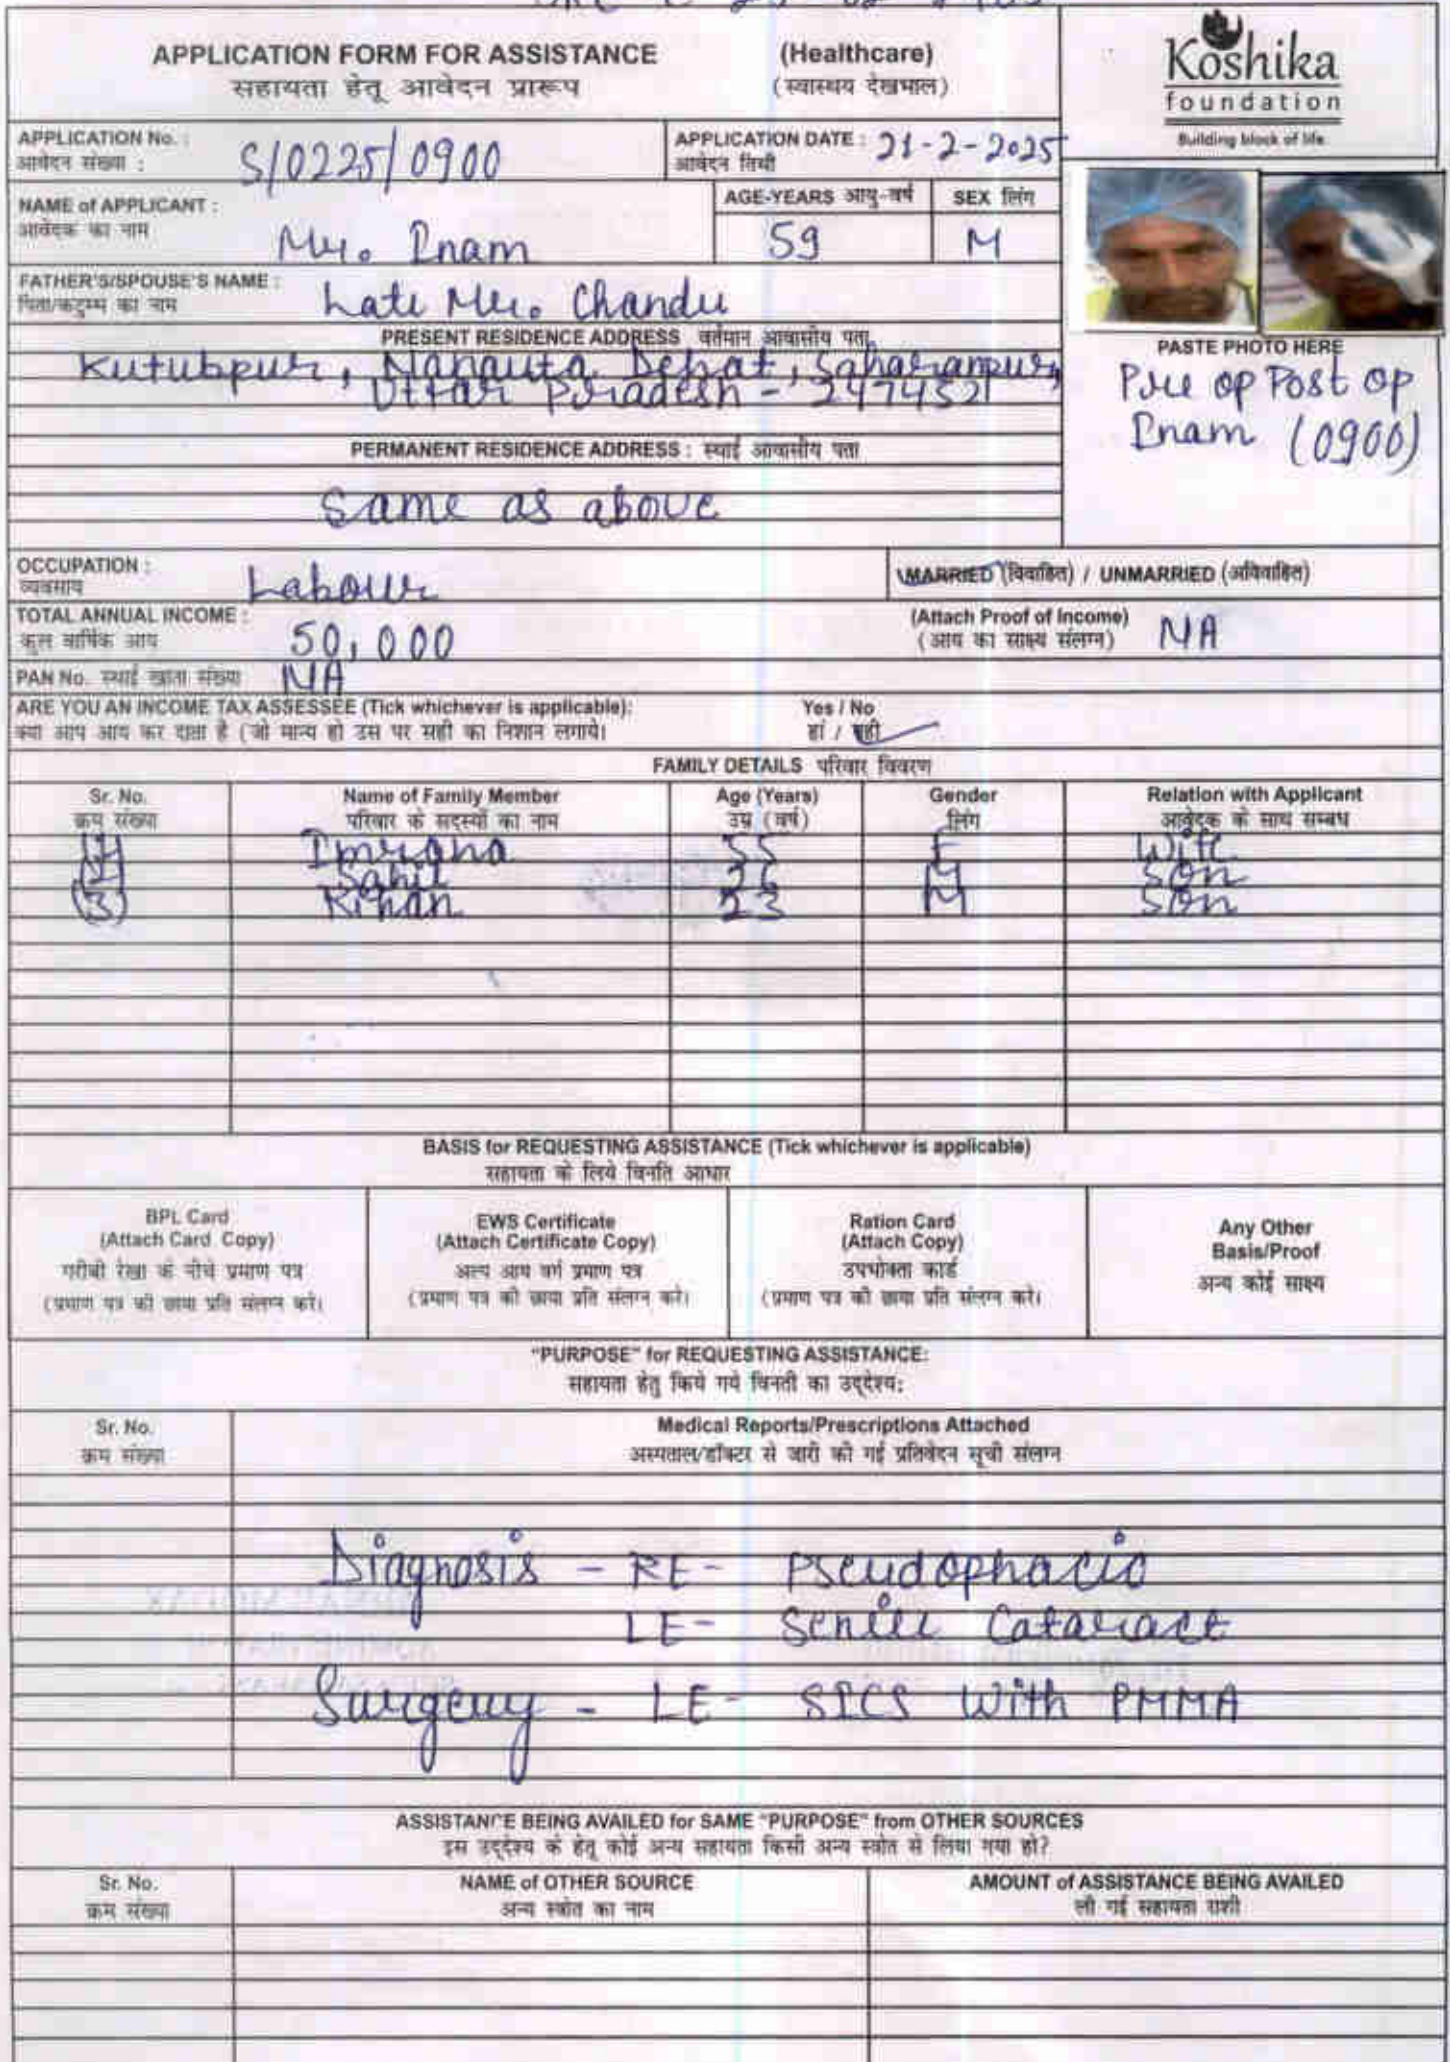 APPLICATION FORM FOR ASSISTANCE (Healthcare)
सहायता हेतू आवेदन प्रारूप (स्वास्थय देखभाल)
Koshika
foundation
Building block of life
APPLICATION No. :
आवेदन संख्या :
S/0225/0900
APPLICATION DATE : 21-2-2025
आवेदन तिथी
NAME of APPLICANT :
आवेदक का नाम
Mr. Inam
AGE-YEARS आयु-वर्ष
59
SEX लिंग
M
FATHER'S/SPOUSE'S NAME :
पिता/कटुम्ब का नाम
Late Mr. Chandu
PRESENT RESIDENCE ADDRESS वर्तमान आवासीय पता
Kutubpur, Nanauta Dehat, Saharanpur,
Uttar Pradesh - 247452
PASTE PHOTO HERE
Pre op Post op
Inam (0900)
PERMANENT RESIDENCE ADDRESS : स्थाई आवासीय पता
Same as above
OCCUPATION :
व्यवसाय
Labour
MARRIED (विवाहित) / UNMARRIED (अविवाहित)
TOTAL ANNUAL INCOME :
कुल वार्षिक आय
50,000
(Attach Proof of Income)
(आय का साक्ष्य संलग्न)
NA
PAN No. स्थाई खाता संख्या NA
ARE YOU AN INCOME TAX ASSESSEE (Tick whichever is applicable): Yes / No
क्या आप आय कर दाता है (जो मान्य हो उस पर सही का निशान लगाये। हां / नही
FAMILY DETAILS परिवार विवरण
Sr. No. Name of Family Member Age (Years) Gender Relation with Applicant
क्रम संख्या परिवार के सदस्यों का नाम उम्र (वर्ष) लिंग आवेदक के साथ सम्बध
(1) Imrana 55 F Wife
(2) Sahil 26 M Son
(3) Rihan 23 M Son
BASIS for REQUESTING ASSISTANCE (Tick whichever is applicable)
सहायता के लिये विनति आधार
BPL Card
(Attach Card Copy)
गरीबी रेखा के नीचे प्रमाण पत्र
(प्रमाण पत्र की छाया प्रति संलग्न करे।
EWS Certificate
(Attach Certificate Copy)
अल्प आय वर्ग प्रमाण पत्र
(प्रमाण पत्र की छाया प्रति संलग्न करे।
Ration Card
(Attach Copy)
उपभोक्ता कार्ड
(प्रमाण पत्र की छाया प्रति संलग्न करे।
Any Other
Basis/Proof
अन्य कोई साक्ष्य
"PURPOSE" for REQUESTING ASSISTANCE:
सहायता हेतु किये गये विनती का उद्देश्य:
Sr. No. Medical Reports/Prescriptions Attached
क्रम संख्या अस्पताल/डॉक्टर से जारी की गई प्रतिवेदन सूची संलग्न
Diagnosis - RE- Pseudophacic
LE- Senile Cataract
Surgery - LE- SICS with PMMA
ASSISTANCE BEING AVAILED for SAME "PURPOSE" from OTHER SOURCES
इस उद्देश्य के हेतू कोई अन्य सहायता किसी अन्य स्त्रोत से लिया गया हो?
Sr. No. NAME of OTHER SOURCE AMOUNT of ASSISTANCE BEING AVAILED
क्रम संख्या अन्य स्त्रोत का नाम ली गई सहायता राशी